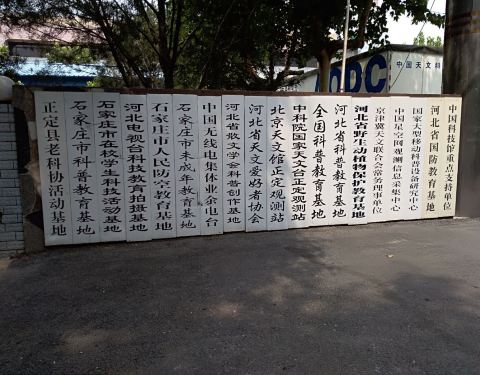 AODC
中国天文科
中国科技馆重点支持单位
河北省国防教育基地
国家大型移动科普设备研究中心
中国星空网观测信息采集中心
京津冀天文联合会常务理事单位
河北省野生动植物保护教育基地
河北省科普教育基地
全国科普教育基地
中科院国家天文台正定观测站
北京天文馆正定观测站
河北省天文爱好者协会
河北省散文学会科普创作基地
中国无线电集体业余电台
石家庄市未成年教育基地
石家庄市人民防空教育基地
河北电视台科技教育拍摄基地
石家庄市在校学生科技活动基地
石家庄市科普教育基地
正定县老科协活动基地